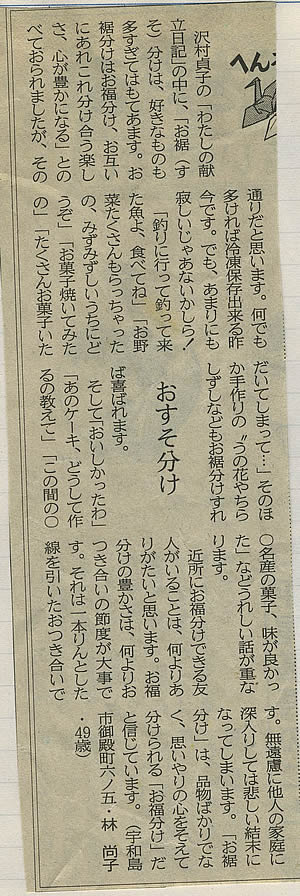 おすそ分け
沢村貞子の「わたしの献
立日記」の中に、「お裾（す
そ）分けは、好きなものも
多すぎてはもてあます。お
裾分けはお福分け、お互い
にあれこれ分け合う楽し
さ、心が豊かになる」との
べておられましたが、その
通りだと思います。何でも
多ければ冷凍保存出来る昨
今です。でも、あまりにも
寂しいじゃあないかしら！
「釣りに行って釣って来
た魚よ、食べてね」「お野
菜たくさんもらっちゃった
の、みずみずしいうちにど
うぞ」「お菓子焼いてみた
の」「たくさんお菓子いた
だいてしまって…」そのほ
か手作りの〝うの花やちら
しずしなどもお裾分けすれ
ば喜ばれます。
そして「おいしかったわ」
「あのケーキ、どうして作
るの教えて」「この間の〇
〇名産の菓子、味が良かっ
た」などうれしい話が重な
ります。
近所にお福分けできる友
人がいることは、何よりあ
りがたいと思います。お福
分けの豊かさは、何よりお
つき合いの節度が大事で
す。それは一本りんとした
線を引いたおつき合いで
す。無遠慮に他人の家庭に
深入りしては悲しい結末に
なってしまいます。「お裾
分け」は、品物ばかりでな
く、思いやりの心をそえて
分けられる「お福分け」だ
と信じています。（宇和島
市御殿町六ノ五・林 尚子
・49歳）